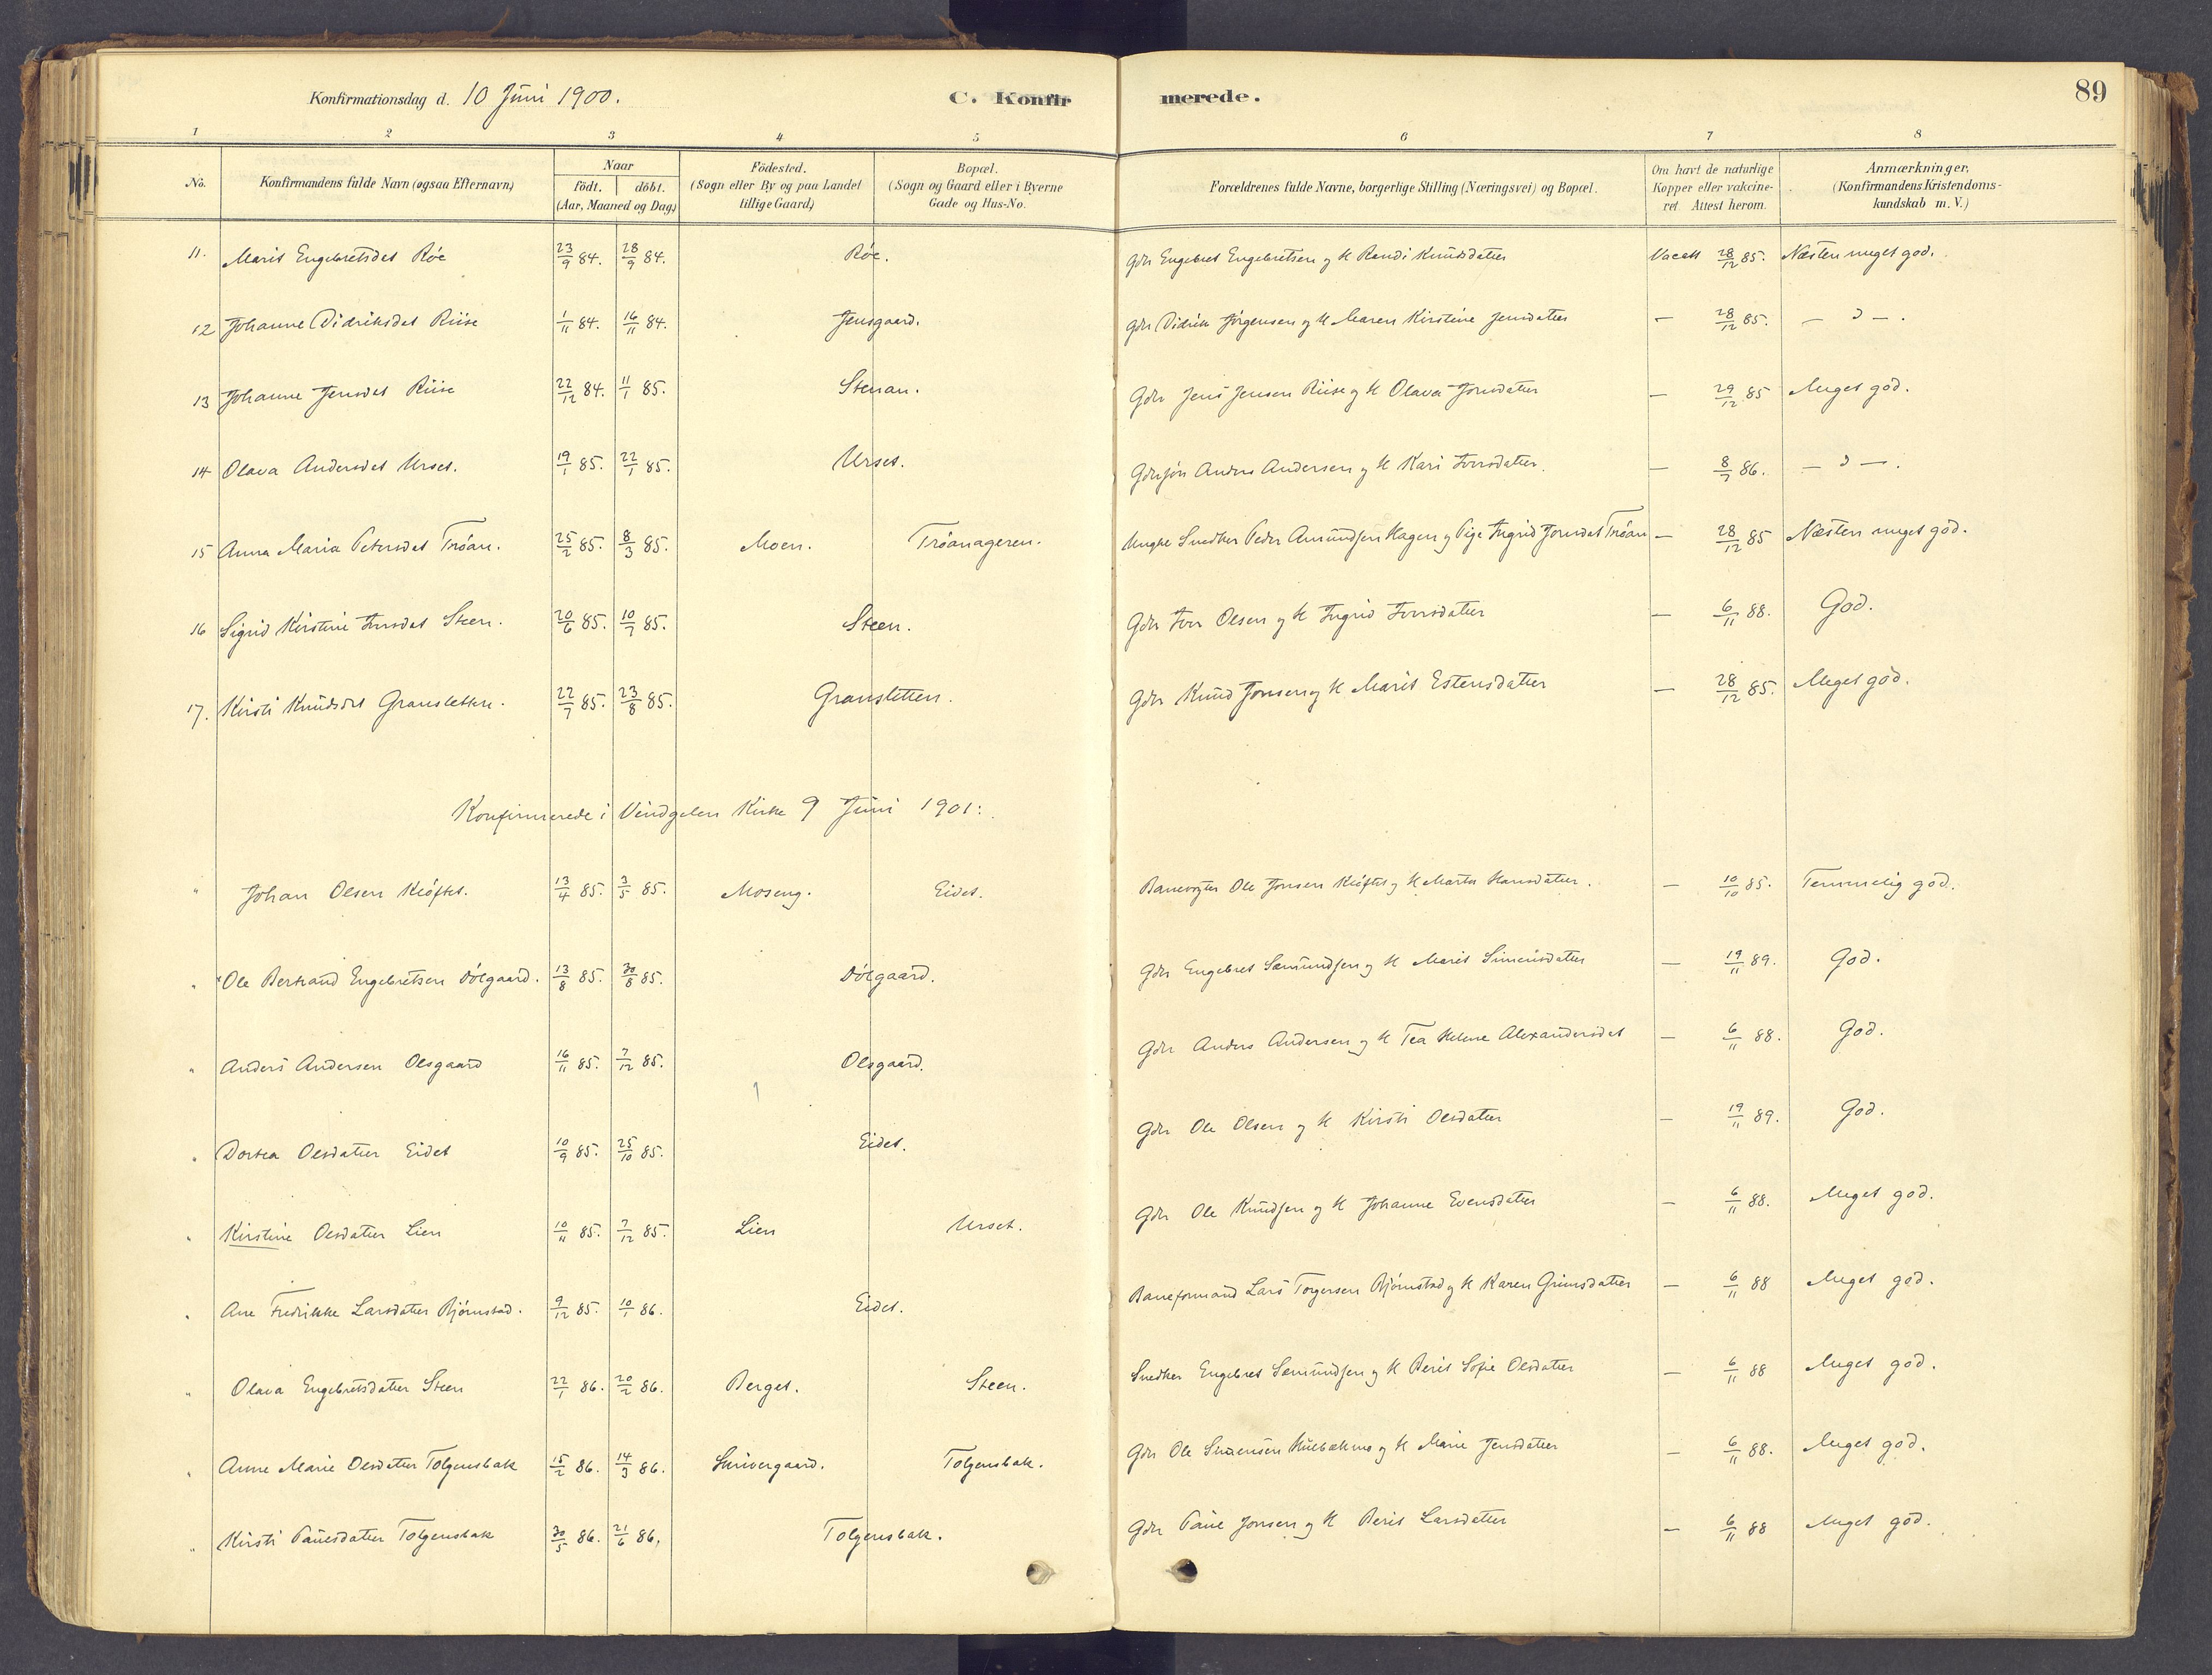 Konfirmationsdag d. 10 Juni 1900. C. Konfirmerede. 89
1 2 3 4 5 6 7 8
No. Konfirmandens fulde Navn (ogsaa Efternavn) Naar födt. döbt. (Aar, Maaned og Dag) Födested. (Sogn eller By og paa Landet tillige Gaard) Bopæl. (Sogn og Gaard eller i Byerne Gade og Hus-No. Forældrenes fulde Navne, borgerlige Stilling (Næringsvei) og Bopæl. Om havt de naturlige Kopper eller vakcineret. Attest herom. Anmærkninger. (Konfirmandens Kristendomskundskab m. V.)
11. Marit Engebretsdat Röe 23/9 84. 28/9 84. Röe. Gdr Engebret Engebretsen og H Randi Knudsdatter Vacc 28/12 85. Næsten meget god.
12 Johanne Didriksdat Riise 1/11 84. 16/11 84. Jensgaard. Gdr Didrik Jörgensen og H Maren Kirstine Jensdatter — 28/12 85. — " — .
13 Johanne Jensdat Riise 22/12 84. 11/1 85. Stenan. Gdr Jens Jensen Riise og H Olava Jonsdatter — 29/12 85 Meget god.
14 Olava Andersdat Urset. 19/1 85. 22/1 85. Urset. Anders Andersen og H Kari Iversdatter. — 8/7 86. — " — .
15 Anna Maria Petersdat Tröan. 25/2 85. 8/3 85. Moen. Tröanageren. Ungke Snedker Peder Amundsen Hagen og Pige Ingrid Jonsdat Tröan — 28/12 85 Næsten meget god.
16 Sigrid Kirstine Iversdat Steen. 20/6 85. 10/7 85. Steen. Gdr Iver Olsen og H Ingrid Iversdatter — 6/11 88. God.
17. Kirsti Knudsdat Gransletten. 22/7 85. 23/8 85. Gransletten. Gdr Knud Jonsen og H Marit Estensdatter — 28/12 85. Meget god.
Konfirmerede i Vindgelen Kirke 9 Juni 1901:
" Johan Olsen Klöftet. 13/4 85. 3/5 85. Moseng. Eidet. Banevogter Ole Jonsen Klöftet og H Marta Hansdatter. — 10/10 85. Temmelig god.
" Ole Bertrand Engebretsen Dölgaard. 13/8 85. 30/8 85. Dölgaard. Gdr Engebret Sæmundsen og H Marit Simensdatter — 19/11 89. God.
" Anders Andersen Olsgaard 16/11 85. 7/12 85. Olsgaard. Gdr Anders Andersen og H Tea Helene Alexandersdat — 6/11 88. God.
" Dortea Olsdatter Eidet 10/9 85. 25/10 85. Eidet. Gdr Ole Olsen og H Kirsti Olsdatter — 19/11 89. God.
" Kirstine Olsdatter Lien 10/11 85. 7/12 85. Lien Urset. Gdr Ole Knudsen og H Johanne Evensdatter — 6/11 88. Meget god.
" Ane Fredrikke Larsdatter Björnstad. 9/12 85. 10/1 86. Eidet. Baneformand Lars Torgersen Björnstad og H Karen Grimsdatter — 6/11 88 Meget god.
" Olava Engebretsdatter Steen 22/1 86. 20/2 86. Berget. Steen. Snedker Engebret Sæmundsen og H Berit Sofie Olsdatter — 6/11 88 Meget god.
" Anne Marie Olsdatter Tolgensbak 15/2 86. 14/3 86. Skrivergaard. Tolgensbak. Gdr Ole og H Marie Jensdatter — 6/11 88. Meget god.
" Kirsti Paulsdatter Tolgensbak 30/5 86. 21/6 86. Tolgensbak. Gdr Paul Jonsen og H Berit Larsdatter — 6/11 88 Meget god.